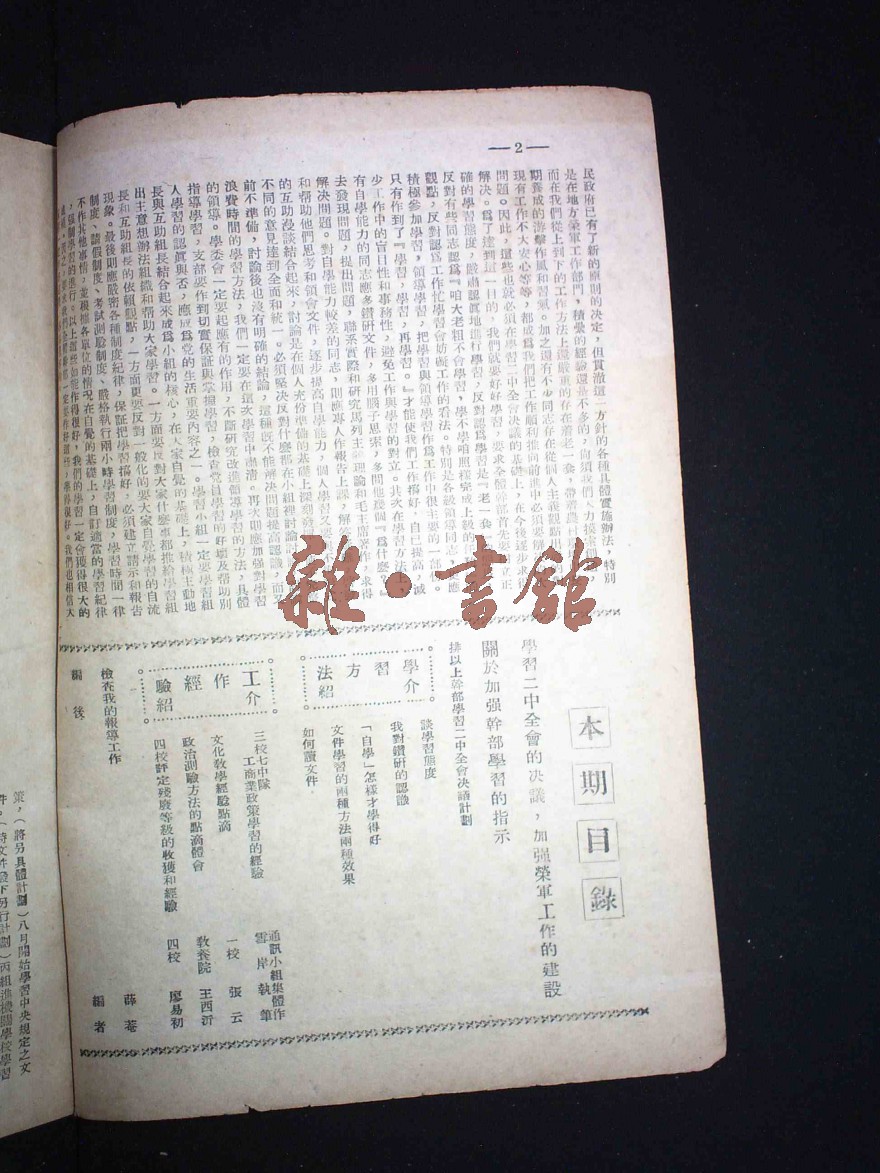 —2—
民政府已有了新的原則的決定，但貫澈這一方針的各種具體實施辦法，特別
是在地方榮軍工作部門，積累的經驗還是不多的，尚須我們大力摸
而在我們從上到下的工作方法上還嚴重的存在着老一套，帶着農
期養成的游擊作風和習氣。加之還有不少同志存在從個人主義觀點
現有工作不大安心等等，都成爲我們把工作順利推向前進中必須要
問題。因此，這些也就必須在學習二中全會決議的基礎上，在今後逐步求
解決。爲了達到這一目的，我們就要好好學習，要求全體幹部首先要有正
確的學習態度，嚴肅認真地進行學習，反對認爲學習是『老一套』
反對有些同志認爲『咱大老粗不會學習，學不學咱照樣完成上級的
觀點，反對認爲工作忙學習會妨礙工作的看法。特別是各級領導同志
積極參加學習，領導學習，把學習與領導學習作爲工作中很主要的一部份。
只有作到了『學習，學習，再學習。』才能使我們工作搞好，自已提高，減
少工作中的盲目性和事務性，避免工作與學習的對立。其次在學習方法上
有自學能力的同志應多鑽研文件，多用腦子思索，多問他幾個『爲什麼？』
去發現問題，提出問題，聯系實際和研究馬列主義理論和毛主席著作，求得
解決問題。對自學能力較差的同志，則應專人作報告上課，解答
和幫助他們思考和領會文件，逐步提高自學能力，個人學習又
的互助漫談結合起來，討論是在個人充份準備的基礎上深刻發
不同的意見達到全面和統一。必須堅決反對什麼都在小組裡討論
前不準備，討論後也沒有明確的結論，這種既不能解決問題提高認識，而
浪費時間的學習方法，我們一定要在這次學習中肅清。再次則應加强對學習
的領導。學委會一定要起應有的作用，不斷研究改進領導學習的方法，具體
指導學習，支部要作到切實保証與掌握學習，檢查黨員學習的好壞及幫助別
人學習的認眞與否，應成爲党的生活重要內容之一。學習小組一定要學習組
長與互助組長結合起來成爲小組的核心，在大家自覺的基礎上，積極主動地
出主意想辦法組織和幫助大家學習。一方面要反對大家什麼事都推給學習組
長和互助組長的依賴觀點，一方面更要反對一般化的要大家自覺學習的自流
現象。最後則應嚴密各種制度紀律，保証把學習搞好，必須建立請示和報告
制度、請假制度、考試測驗制度、嚴格執行兩小時學習制度，學習時間一律
不作其他事情，並根據各單位的情況在自覺的基礎上，自訂適當的學習紀律
，保證學習的進行。以上這些如能作得很好，我們的學習一定會獲得很大的
雜·書館
本期目錄
學習二中全會的決議，加强榮軍工作的建設
關於加强幹部學習的指示
排以上幹部學習二中全會決議計劃
學習方法介紹
談學習態度
我對鑽研的認識
「自學」怎樣才學得好
文件學習的兩種方法兩種效果
如何讀文件
工作經驗介紹
三校七中隊
工商業政策學習的經驗
通訊小組集體作
雲岸執筆
文化教學經驗點滴 一校 張云
政治測驗方法的點滴體會 教養院 王西沂
四校評定殘廢等級的收獲和經驗 四校 廖易初
檢查我的報導工作 薛菴
編後 編者
策，（將另具體計劃）八月開始學習中央規定之文